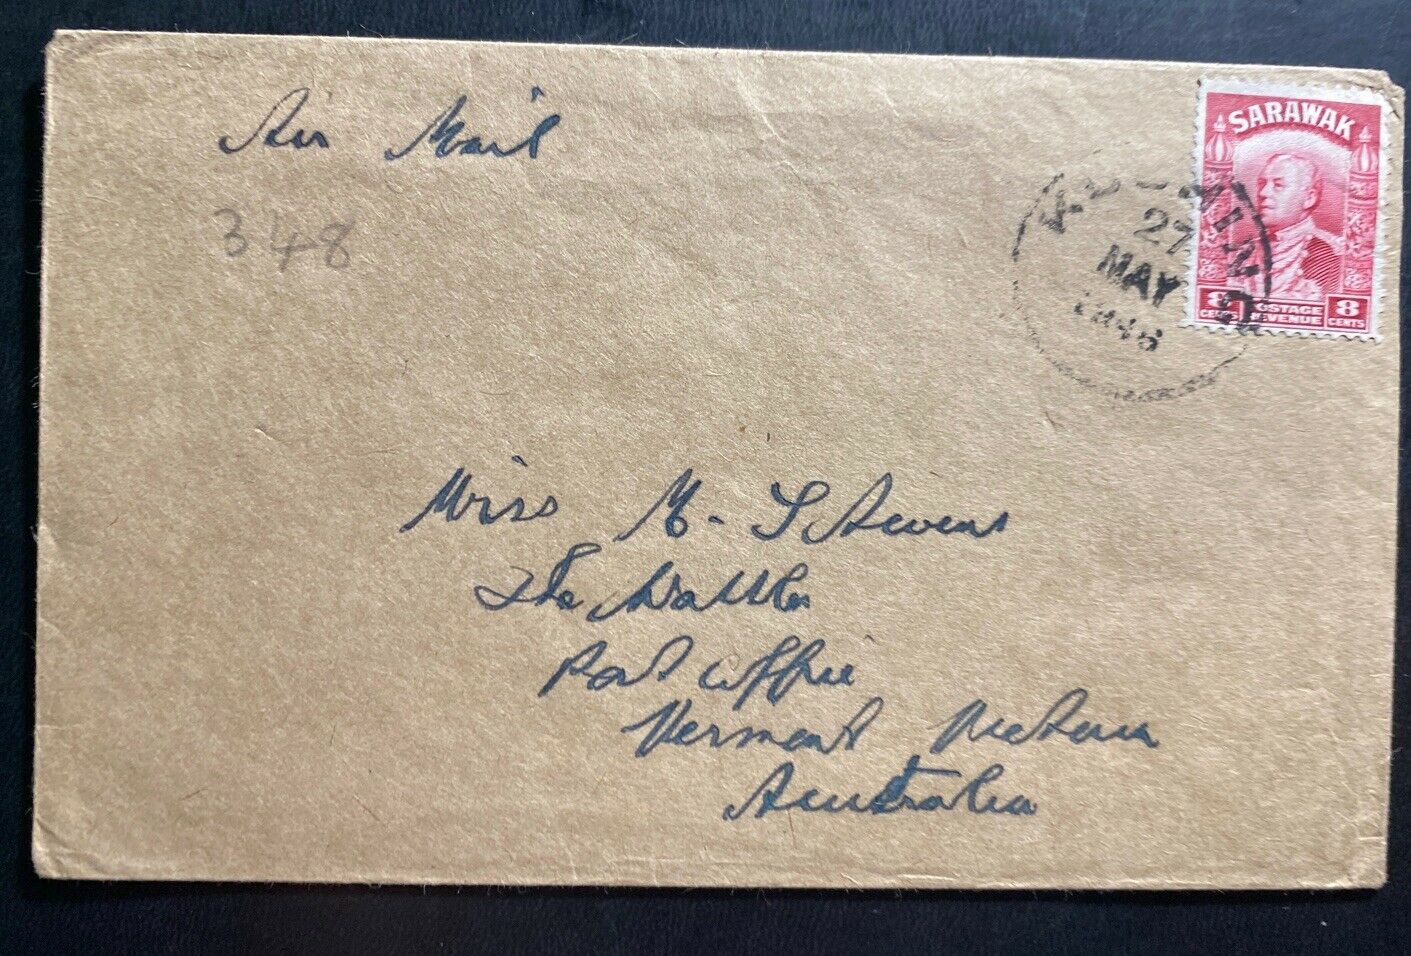 Air Mail
348
SARAWAK
27
MAY
1946
8 CENTS POSTAGE REVENUE 8 CENTS
Miss M. Stevens
The Wattles
Post Office
Vermont Victoria
Australia